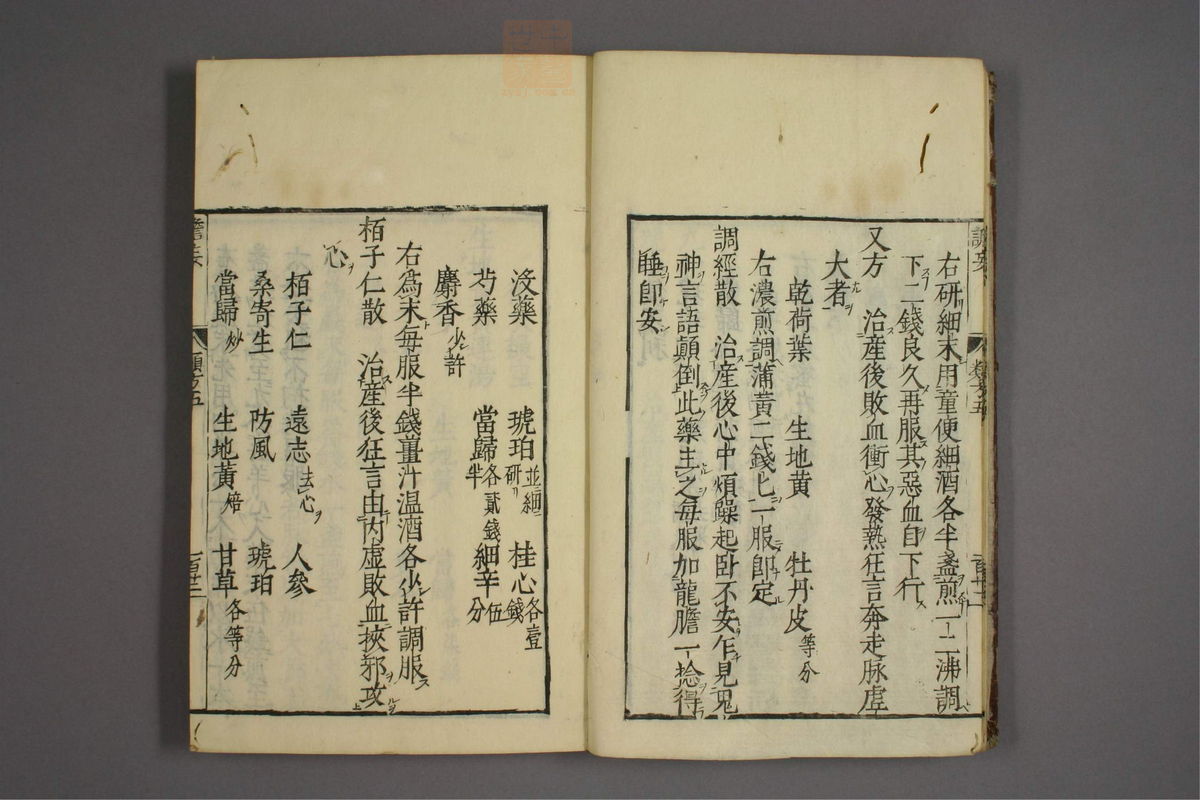 右研細末用童便細酒各半盞煎一二沸調
下二錢良久再服其惡血自下行
又方　治産後敗血衝心發熱狂言奔走脉虛
大者
乾荷葉　生地黄　牡丹皮等分
右濃煎調蒲黄二錢匕一服即定
調經散　治産後心中煩躁起卧不安乍見鬼
神言語顛倒此藥主之毎服加龍膽一捻得
睡即安
没藥　琥珀並細研　桂心各壹錢
芍藥　當歸各貳錢半　細辛伍分
麝香少許
右為末毎服半錢薑汁温酒各少許調服
栢子仁散　治産後狂言由内虚敗血挾邪攻
心
栢子仁　遠志去心　人參
桑寄生　防風　琥珀
當歸炒　生地黄焙　甘草各等分